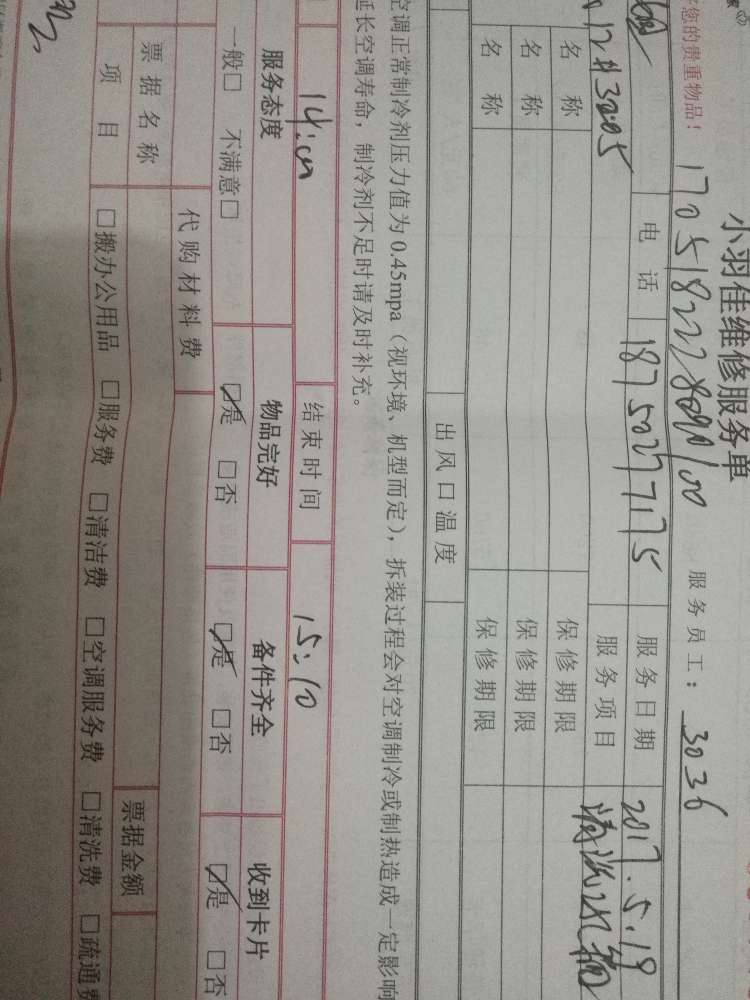 小羽佳维修服务单
您的贵重物品！ 服务员工：3036
电话 18750277175 服务日期 2017.5.19
12#3205 服务项目
名称 保修期限
名称 保修期限
名称 保修期限
出风口温度
空调正常制冷剂压力值为0.45mpa（视环境、机型而定），拆装过程会对空调制冷或制热造成一定影响
延长空调寿命，制冷剂不足时请及时补充。
14:00 结束时间 15:10
服务态度 物品完好 备件齐全 收到卡片
一般□ 不满意□ ☑是 □否 ☑是 □否 ☑是 □否
代购材料费
票据名称 票据金额
项目 □搬办公用品 □服务费 □清洁费 □空调服务费 □清洗费 □疏通费